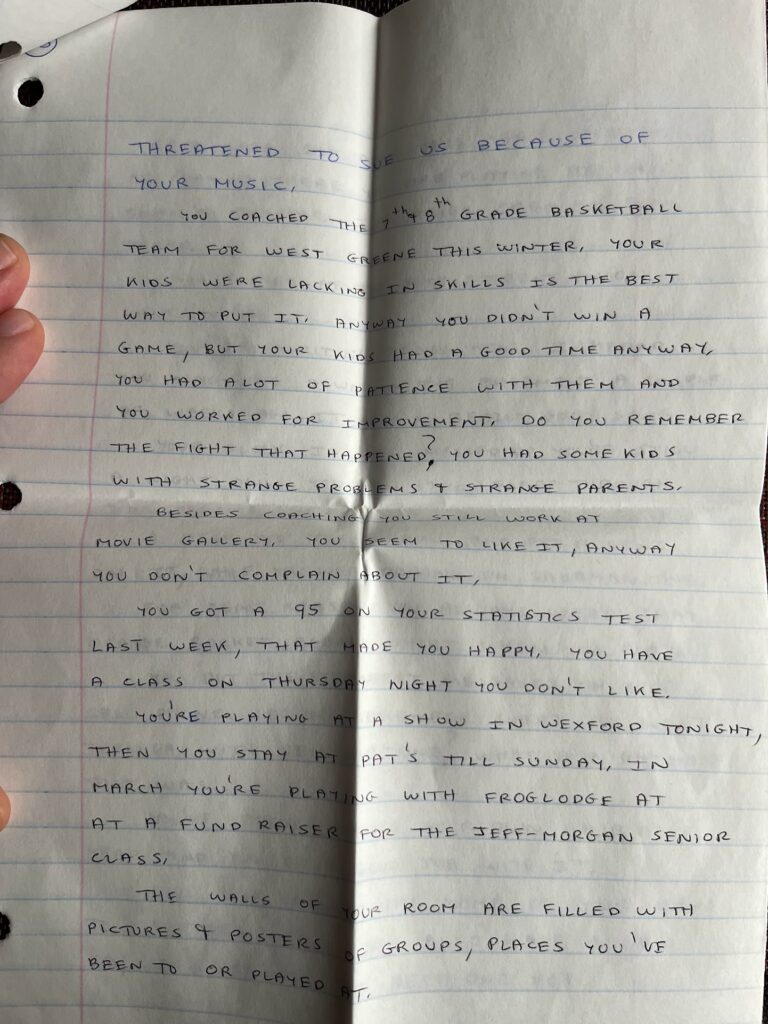 THREATENED TO SUE US BECAUSE OF
YOUR MUSIC.
YOU COACHED THE 7th & 8th GRADE BASKETBALL
TEAM FOR WEST GREENE THIS WINTER. YOUR
KIDS WERE LACKING IN SKILLS IS THE BEST
WAY TO PUT IT. ANYWAY YOU DIDN'T WIN A
GAME, BUT YOUR KIDS HAD A GOOD TIME ANYWAY.
YOU HAD A LOT OF PATIENCE WITH THEM AND
YOU WORKED FOR IMPROVEMENT. DO YOU REMEMBER
THE FIGHT THAT HAPPENED? YOU HAD SOME KIDS
WITH STRANGE PROBLEMS & STRANGE PARENTS.
BESIDES COACHING YOU STILL WORK AT
MOVIE GALLERY. YOU SEEM TO LIKE IT, ANYWAY
YOU DON'T COMPLAIN ABOUT IT.
YOU GOT A 95 ON YOUR STATISTICS TEST
LAST WEEK, THAT MADE YOU HAPPY. YOU HAVE
A CLASS ON THURSDAY NIGHT YOU DON'T LIKE.
YOU'RE PLAYING AT A SHOW IN WEXFORD TONIGHT,
THEN YOU STAY AT PAT'S TILL SUNDAY. IN
MARCH YOU'RE PLAYING WITH FROGLODGE AT
AT A FUND RAISER FOR THE JEFF-MORGAN SENIOR
CLASS.
THE WALLS OF YOUR ROOM ARE FILLED WITH
PICTURES & POSTERS OF GROUPS, PLACES YOU'VE
BEEN TO OR PLAYED AT.